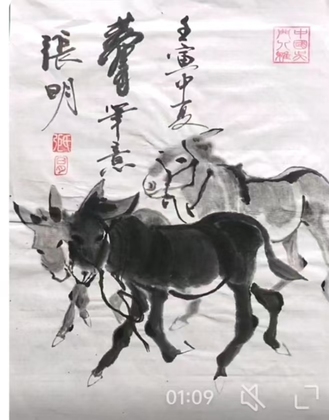 壬寅中夏
黄胄筆意
張明
01:09